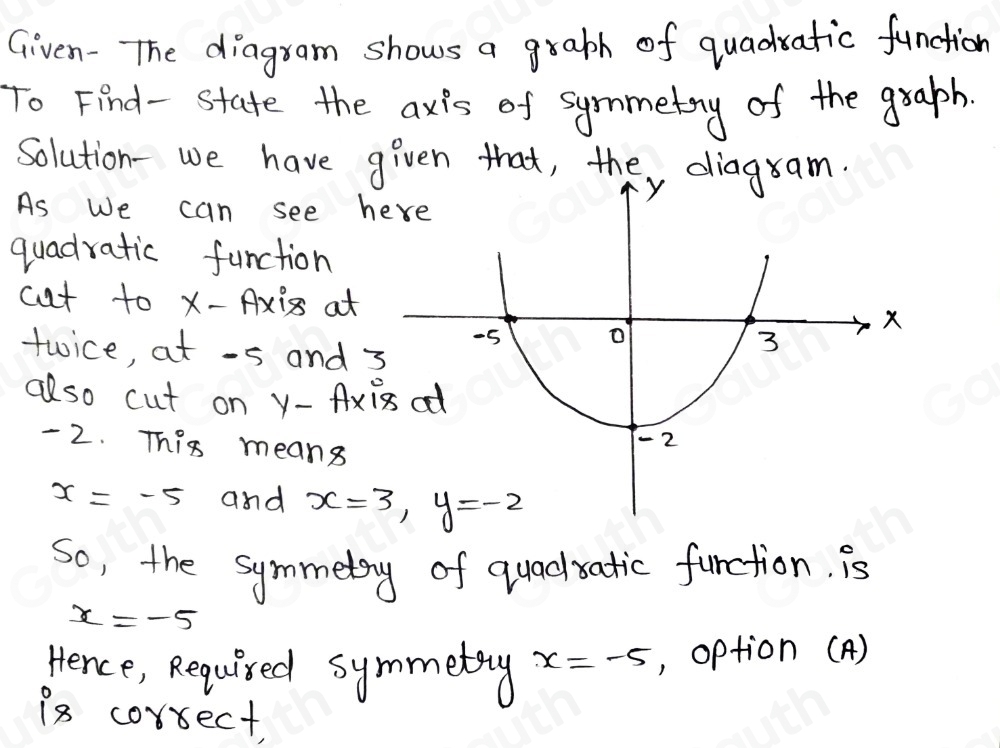 Given- The diagram shows a graph of quadratic function
To Find- State the axis of symmetry of the graph.
Solution- we have given that, the diagram.
As we can see here
quadratic function
cut to x-Axis at
twice, at -5 and 3
also cut on y-Axis at
-2. This means
x = -5 and x=3, y=-2
So, the symmetry of quadratic function. is
x = -5
Hence, Required symmetry x = -5, option (A)
is correct,
y
x
-5
0
3
-2
Gauth